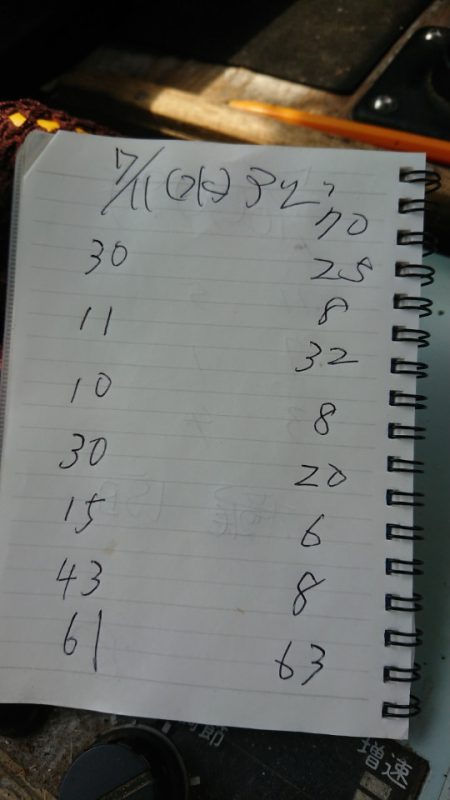 7/11(水)
70
30 25
11 8
32
10 8
30 20
15 6
43 8
61 63
節
増速